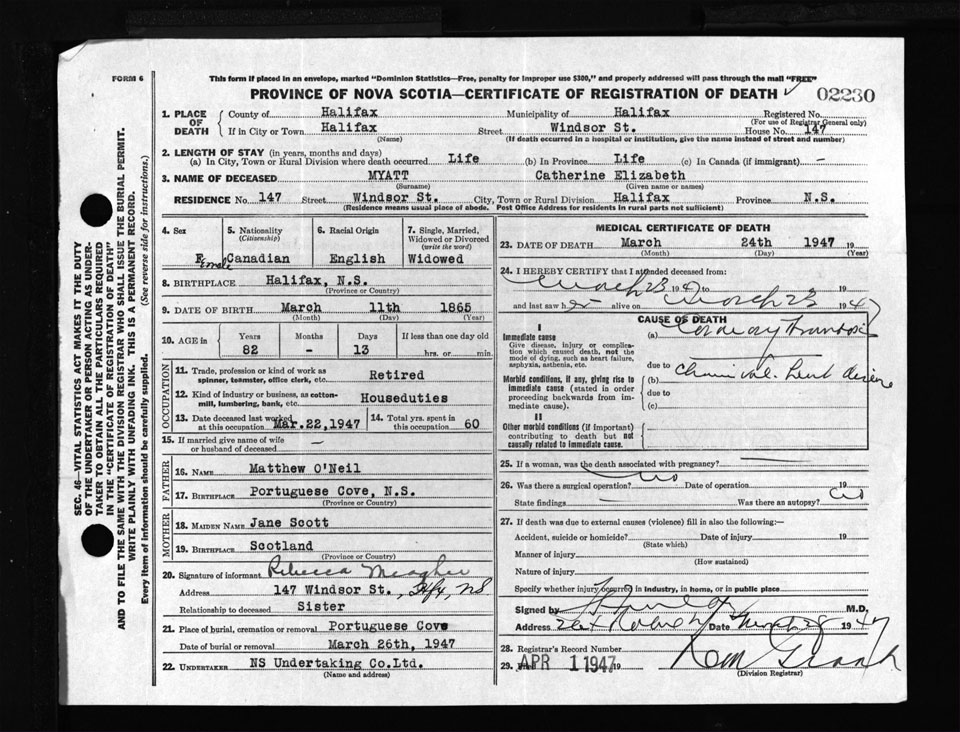 FORM 6
This form if placed in an envelope, marked "Dominion Statistics—Free, penalty for improper use $300," and properly addressed will pass through the mail "FREE"
PROVINCE OF NOVA SCOTIA—CERTIFICATE OF REGISTRATION OF DEATH
02230
1. PLACE OF DEATH
County of Halifax Municipality of Halifax Registered No.
(For use of Registrar General only)
If in City or Town Halifax Street Windsor St. House No. 147
(Name) (If death occurred in a hospital or institution, give the name instead of street and number)
2. LENGTH OF STAY (in years, months and days)
(a) In City, Town or Rural Division where death occurred Life (b) In Province Life (c) In Canada (if immigrant) —
3. NAME OF DECEASED MYATT Catherine Elizabeth
(Surname) (Given name or names)
RESIDENCE No. 147 Street Windsor St. City, Town or Rural Division Halifax Province N.S.
(Residence means usual place of abode. Post Office Address for residents in rural parts not sufficient)
4. Sex Female
5. Nationality (Citizenship) Canadian
6. Racial Origin English
7. Single, Married, Widowed or Divorced (write the word) Widowed
8. BIRTHPLACE Halifax, N.S.
(Province or Country)
9. DATE OF BIRTH March 11th 1865
(Month) (Day) (Year)
10. AGE in Years Months Days If less than one day old
82 - 13 hrs. or min.
OCCUPATION
11. Trade, profession or kind of work as spinner, teamster, office clerk, etc. Retired
12. Kind of industry or business, as cotton-mill, lumbering, bank, etc. Houseduties
13. Date deceased last worked at this occupation Mar.22,1947
14. Total yrs. spent in this occupation 60
15. If married give name of wife or husband of deceased —
FATHER
16. NAME Matthew O'Neil
17. BIRTHPLACE Portuguese Cove, N.S.
(Province or Country)
MOTHER
18. MAIDEN NAME Jane Scott
19. BIRTHPLACE Scotland
(Province or Country)
20. Signature of informant Rebecca Meagher
Address 147 Windsor St., Hfx, NS
Relationship to deceased Sister
21. Place of burial, cremation or removal Portuguese Cove
Date of burial or removal March 26th, 1947
22. UNDERTAKER NS Undertaking Co.Ltd.
(Name and address)
MEDICAL CERTIFICATE OF DEATH
23. DATE OF DEATH March 24th 1947 19
(Month) (Day) (Year)
24. I HEREBY CERTIFY that I attended deceased from:
March 23 1947 to
and last saw her alive on March 23 1947
CAUSE OF DEATH
I
Immediate cause
Give disease, injury or complication which caused death, not the mode of dying, such as heart failure, asphyxia, asthenia, etc.
(a) Coronary
due to
Morbid conditions, if any, giving rise to immediate cause (stated in order proceeding backwards from immediate cause).
(b) heart disease
due to
(c)
II
Other morbid conditions (if important) contributing to death but not causally related to immediate cause.
25. If a woman, was the death associated with pregnancy?
26. Was there a surgical operation? No Date of operation 19
State findings Was there an autopsy? No
27. If death was due to external causes (violence) fill in also the following:—
Accident, suicide or homicide? Date of injury 19
(State which)
Manner of injury
(How sustained)
Nature of injury
Specify whether injury occurred in industry, in home, or in public place
Signed by M.D.
Address Date March 1947
28. Registrar's Record Number
29. APR 1 1947 19
(Division Registrar)
SEC. 46—VITAL STATISTICS ACT MAKES IT THE DUTY
OF THE UNDERTAKER OR PERSON ACTING AS UNDERTAKER TO OBTAIN ALL THE PARTICULARS REQUIRED
IN THE "CERTIFICATE OF REGISTRATION OF DEATH"
AND TO FILE THE SAME WITH THE DIVISION REGISTRAR WHO SHALL ISSUE THE BURIAL PERMIT.
WRITE PLAINLY WITH UNFADING INK. THIS IS A PERMANENT RECORD.
Every item of information should be carefully supplied. (See reverse side for instructions.)